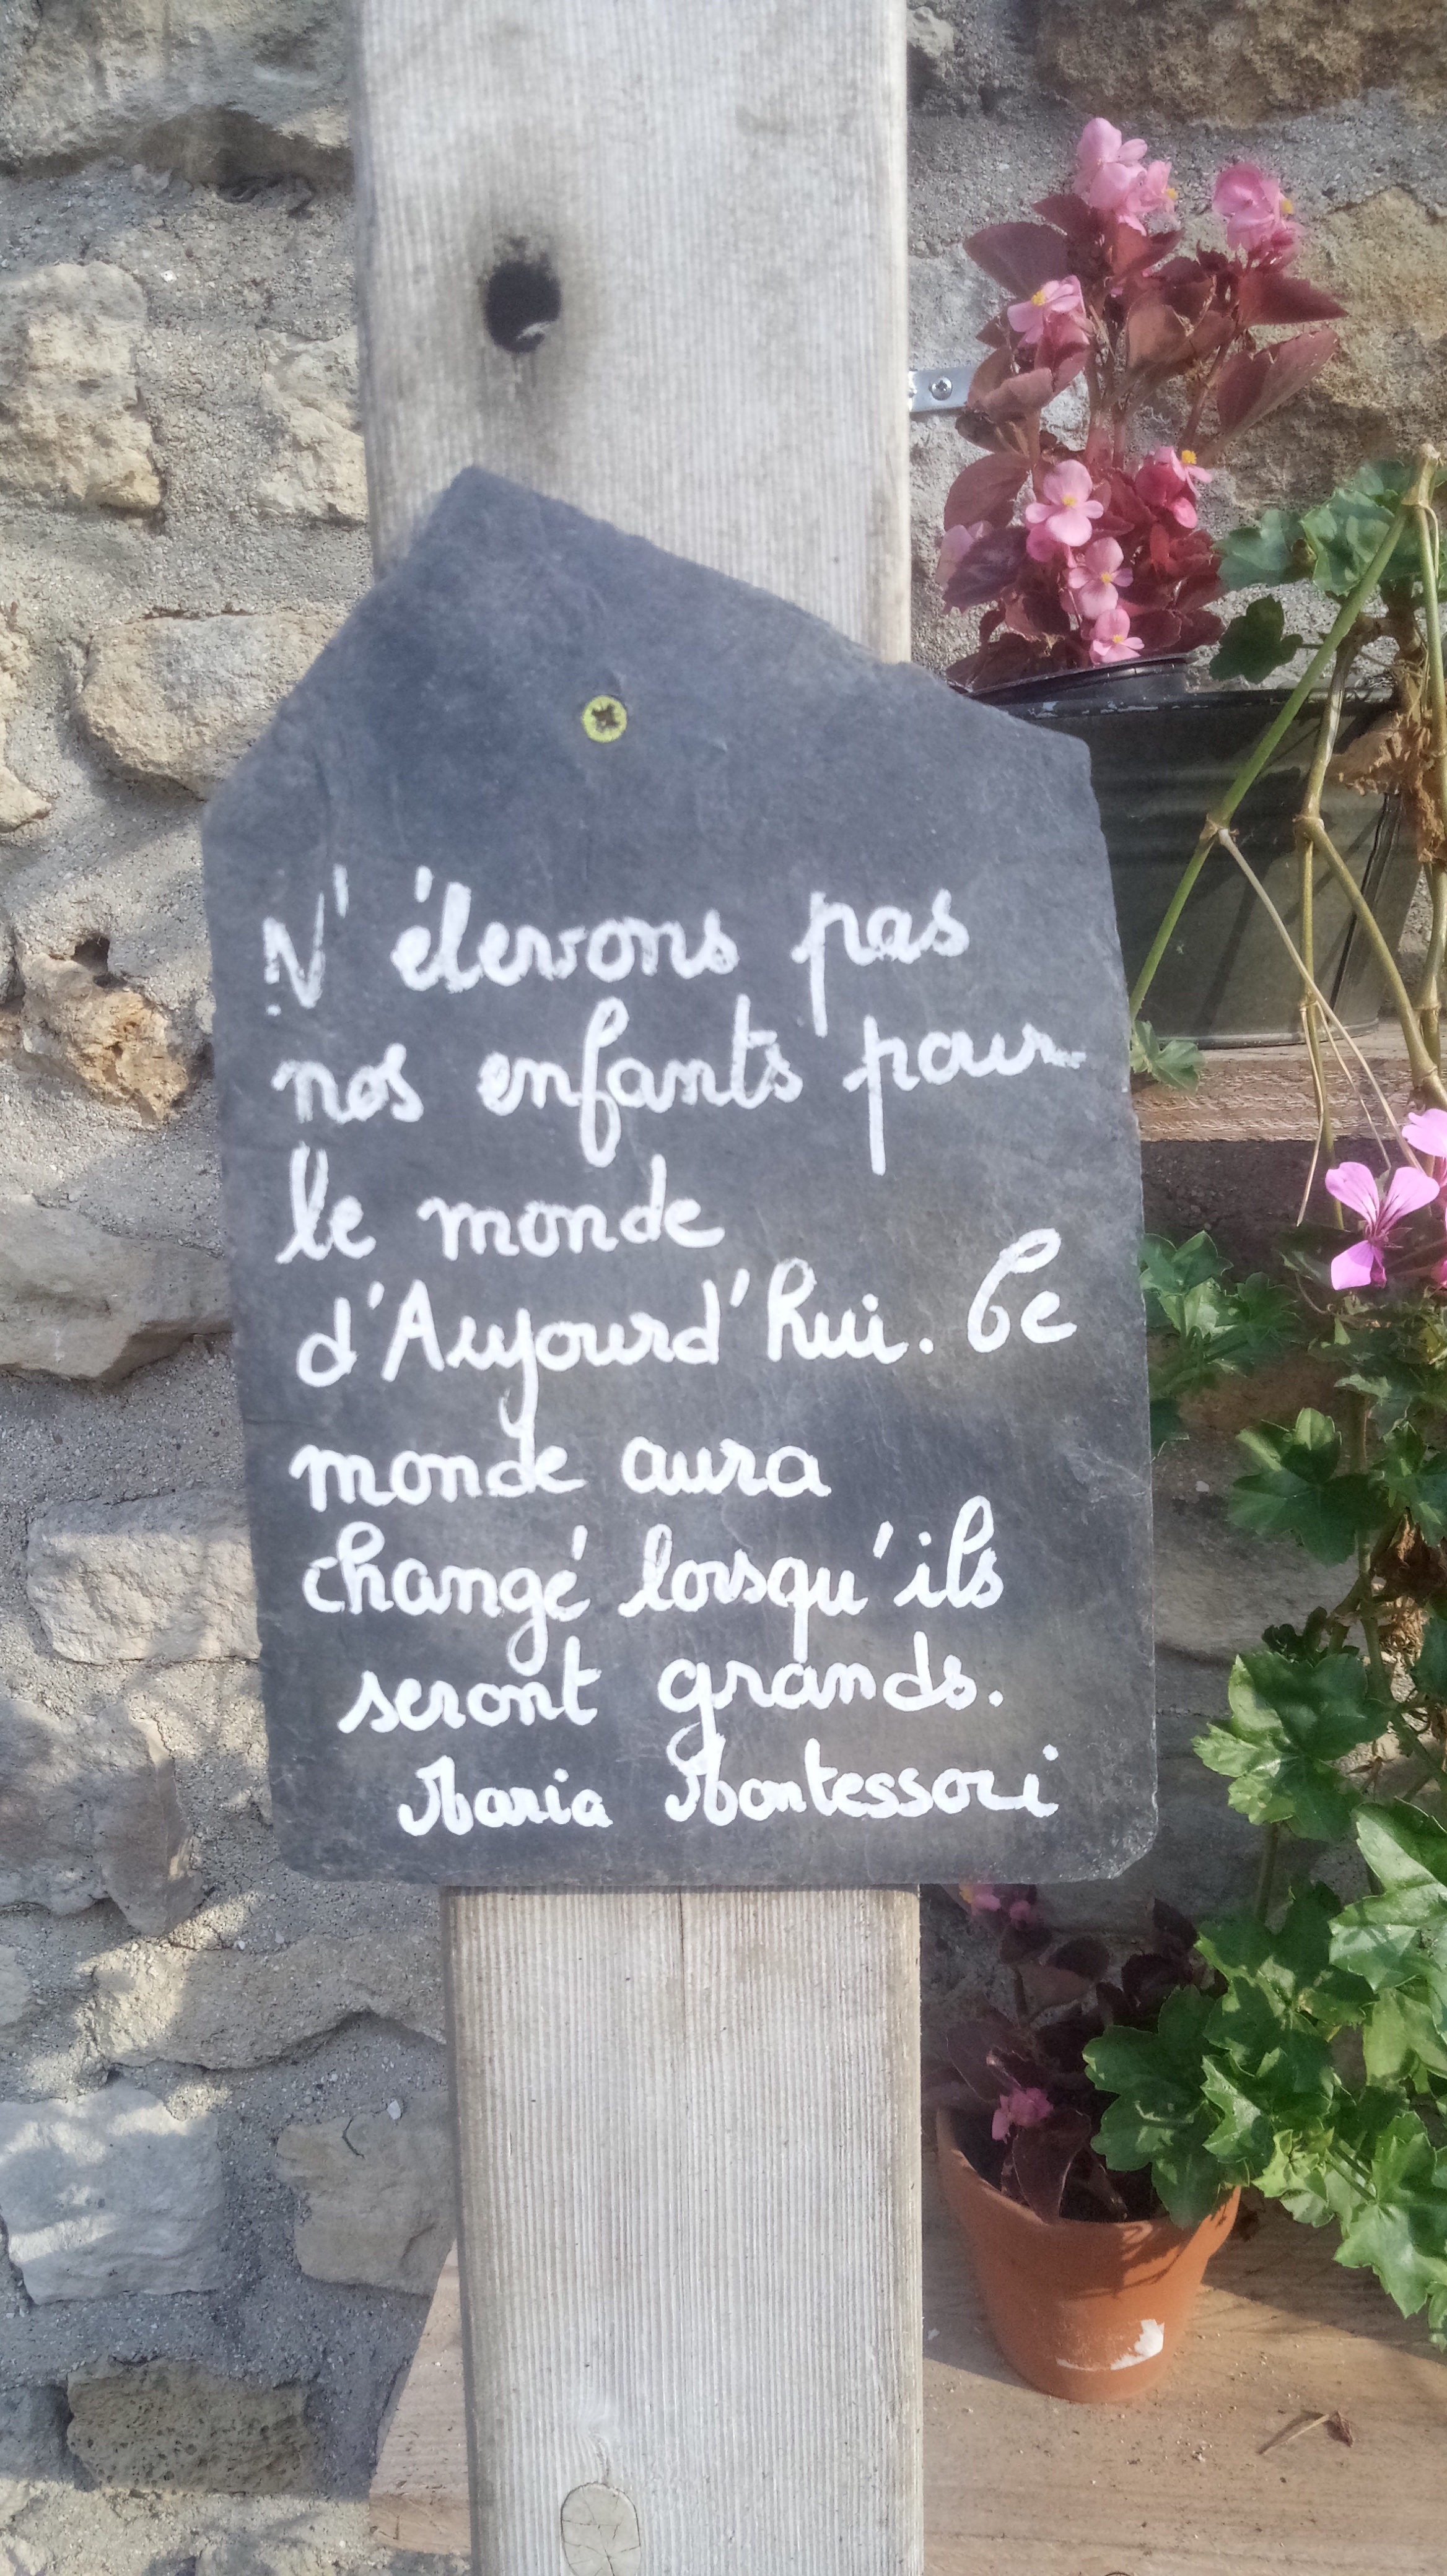 N'élevons pas
nos enfants pour
le monde
d'Aujourd'hui. Ce
monde aura
changé lorsqu'ils
seront grands.
Maria Montessori